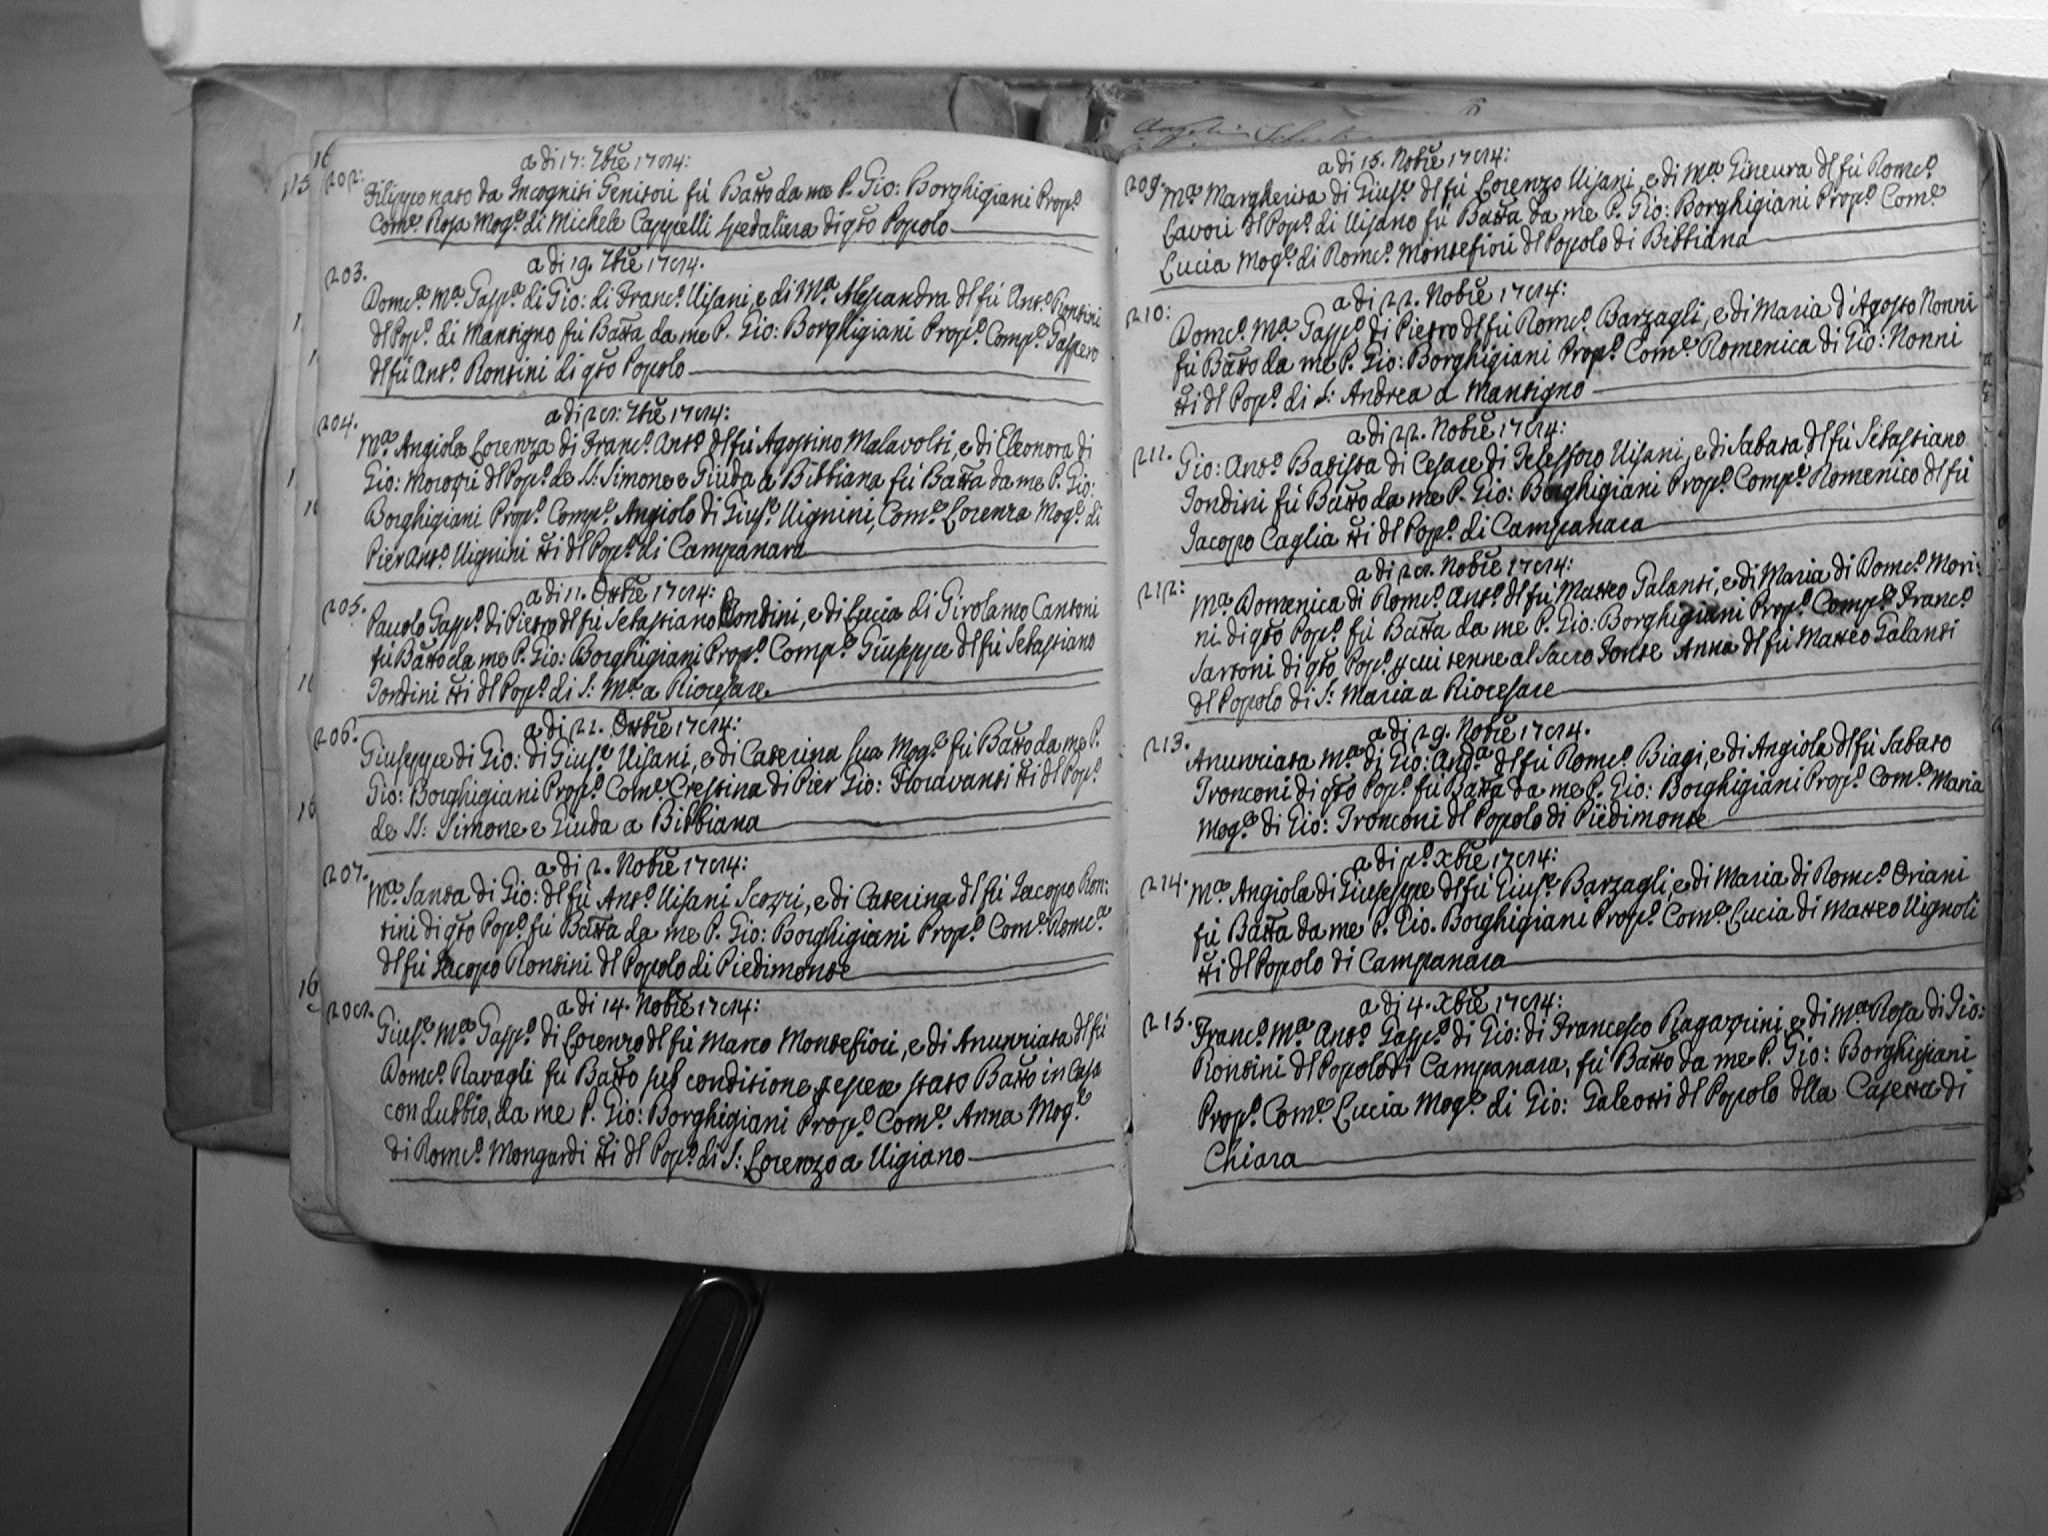 a di 17: 7bre 1784:
202: Filippo nato da Incogniti Genitori fù Batto da me P. Gio: Borghigiani Propo.
Come. Rosa Moge. di Michele Cappelli spedaliera di qto Popolo
a di 19. 7bre 1784.
203. Domca. Ma. Gaspa. di Gio: di Franco. Visani, e di Ma. Alessandra dl fù Anto. Rontini
dl Popo. di Mantigno fù Batta da me P. Gio: Borghigiani Propo. Compe. Gaspero
dl fù Anto. Rontini di qto Popolo
a di 28: 7bre 1784:
204. Ma. Angiola Lorenza di Franco. Anto. dl fù Agostino Malavolti, e di Eleonora di
Gio: Morozzi dl Popo. de SS: Simone e Giuda a Bibbiana fù Batta da me P. Gio:
Borghigiani Propo. Compe. Angiolo di Giuse. Vignini, Come. Lorenza Moge. di
Pier Anto. Vignini tti dl Popo. di Campanara
a di 11. Ottbre 1784:
205. Pauolo Gaspo. di Pietro dl fù Sebastiano Tondini, e di Lucia di Girolamo Cantoni
fù Batto da me P. Gio: Borghigiani Propo. Compe. Giuseppe dl fù Sebastiano
Tondini tti dl Popo. di S: Ma. a Riocesare.
a di 22. Ottbre 1784:
206. Giuseppe di Gio: di Giuse. Visani, e di Caterina sua Moge. fù Batto da me P.
Gio: Borghigiani Propo. Come. Crestina di Pier Gio: Fioravanti tti dl Popo.
de SS: Simone e Giuda a Bibbiana
a di 2. Nobre 1784:
207. Ma. Santa di Gio: dl fù Anto. Visani Scozzi, e di Caterina dl fù Iacopo Ron:
tini di qto Popo. fù Batta da me P. Gio: Borghigiani Propo. Come. Domca.
dl fù Iacopo Rontini dl Popolo di Piedimonte
a di 14. Nobre 1784:
208. Giuse. Ma. Gaspo. di Lorenzo dl fù Marco Montefiori, e di Anunziata dl fù
Domco. Ravagli fù Batto sub conditione p essere stato Batto in Casa
con dubbio, da me P. Gio: Borghigiani Propo. Come. Anna Moge.
di Domco. Mongardi tti dl Popo. di S: Lorenzo a Vigiano
a di 15. Nobre 1784:
209. Ma. Margherita di Giuse. dl fù Lorenzo Visani, e di Ma. Gineura dl fù Domco.
Lavori dl Popo. di Visano fù Batta da me P. Gio: Borghigiani Propo. Come.
Lucia Moge. di Domco. Montefiori dl Popolo di Bibbiana
a di 22. Nobre 1784:
210: Domco. Ma. Gaspo. di Pietro dl fù Domco. Barzagli, e di Maria d'Agosto Nonni
fù Batto da me P. Gio: Borghigiani Propo. Come. Domenica di Gio: Nonni
tti dl Popo. di S: Andrea a Mantigno
a di 22. Nobre 1784:
211. Gio: Anto. Batista di Cesare di Telesforo Visani, e di Sabata dl fù Sebastiano
Tondini fù Batto da me P. Gio: Borghigiani Propo. Compe. Domenico dl fù
Jacopo Caglia tti dl Popo. di Campanara
a di 28. Nobre 1784:
212: Ma. Domenica di Domco. Anto. dl fù Matteo Galanti, e di Maria di Domco. Mori:
ni di qto Popo. fù Batta da me P. Gio: Borghigiani Propo. Compe. Franco.
Sartoni di qto Popo. p cui tenne al Sacro Fonte Anna dl fù Matteo Galanti
dl Popolo di S: Maria a Riocesare
a di 29. Nobre 1784.
213. Anunziata Ma. di Gio: Anda. dl fù Domco. Biagi, e di Angiola dl fù Sabato
Tronconi di qto Popo. fù Batta da me P. Gio: Borghigiani Propo. Come. Maria
Moge. di Gio: Tronconi dl Popolo di Piedimonte
a di po. Xbre 1784:
214. Ma. Angiola di Giuseppe dl fù Giuse. Barzagli, e di Maria di Domco. Oriani
fù Batta da me P. Gio. Borghigiani Propo. Come. Lucia di Matteo Vignoli
tti dl Popolo di Campanara
a di 4. Xbre 1784:
215. Franco. Ma. Anto. Gaspo. di Gio: di Francesco Ragazzini, e di Ma. Rosa di Gio:
Rontini dl Popolo di Campanara, fù Batto da me P. Gio: Borghigiani
Propo. Come. Lucia Moge. di Gio: Galeotti dl Popolo dlla Casetta di
Chiara